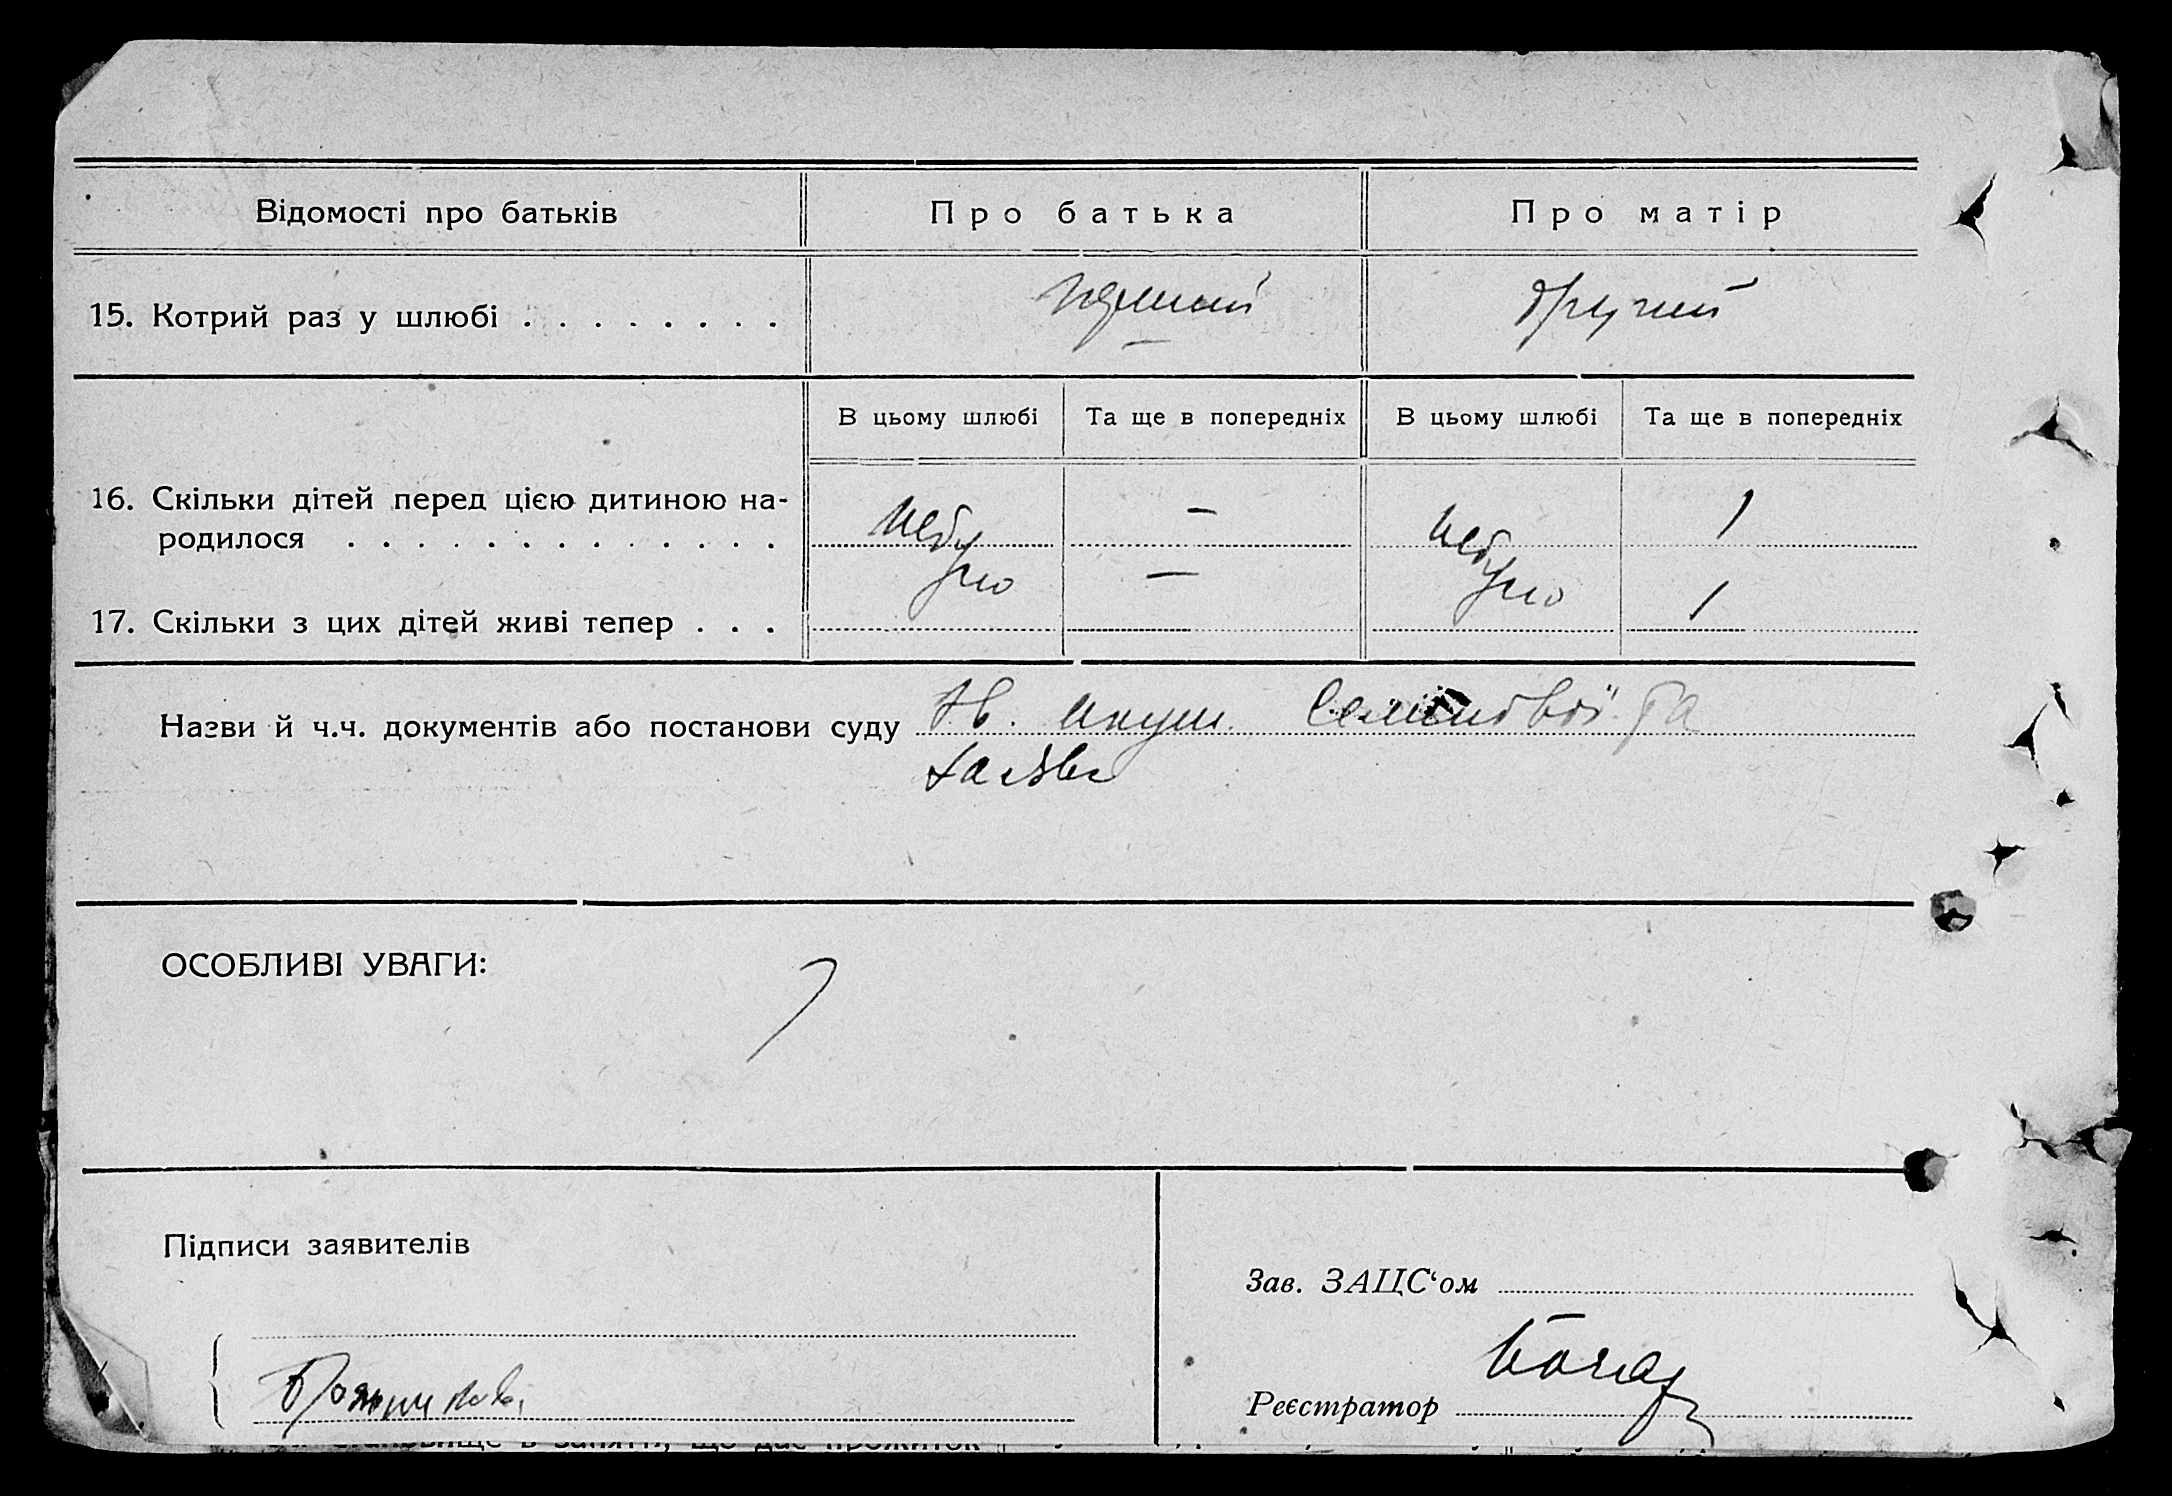 Відомості про батьків
Про батька
Про матір
15. Котрий раз у шлюбі . . . . . . . .
перший
другий
В цьому шлюбі
Та ще в попередніх
В цьому шлюбі
Та ще в попередніх
16. Скільки дітей перед цією дитиною на-
родилося . . . . . . . . . . . . .
небу
—
небу
1
ло
—
ло
1
17. Скільки з цих дітей живі тепер . . .
Назви й ч.ч. документів або постанови суду
акуш. та
заява
ОСОБЛИВІ УВАГИ:
Підписи заявителів
Зав. ЗАЦС‘ом
Реєстратор
становище в занятті, що дає прожиток